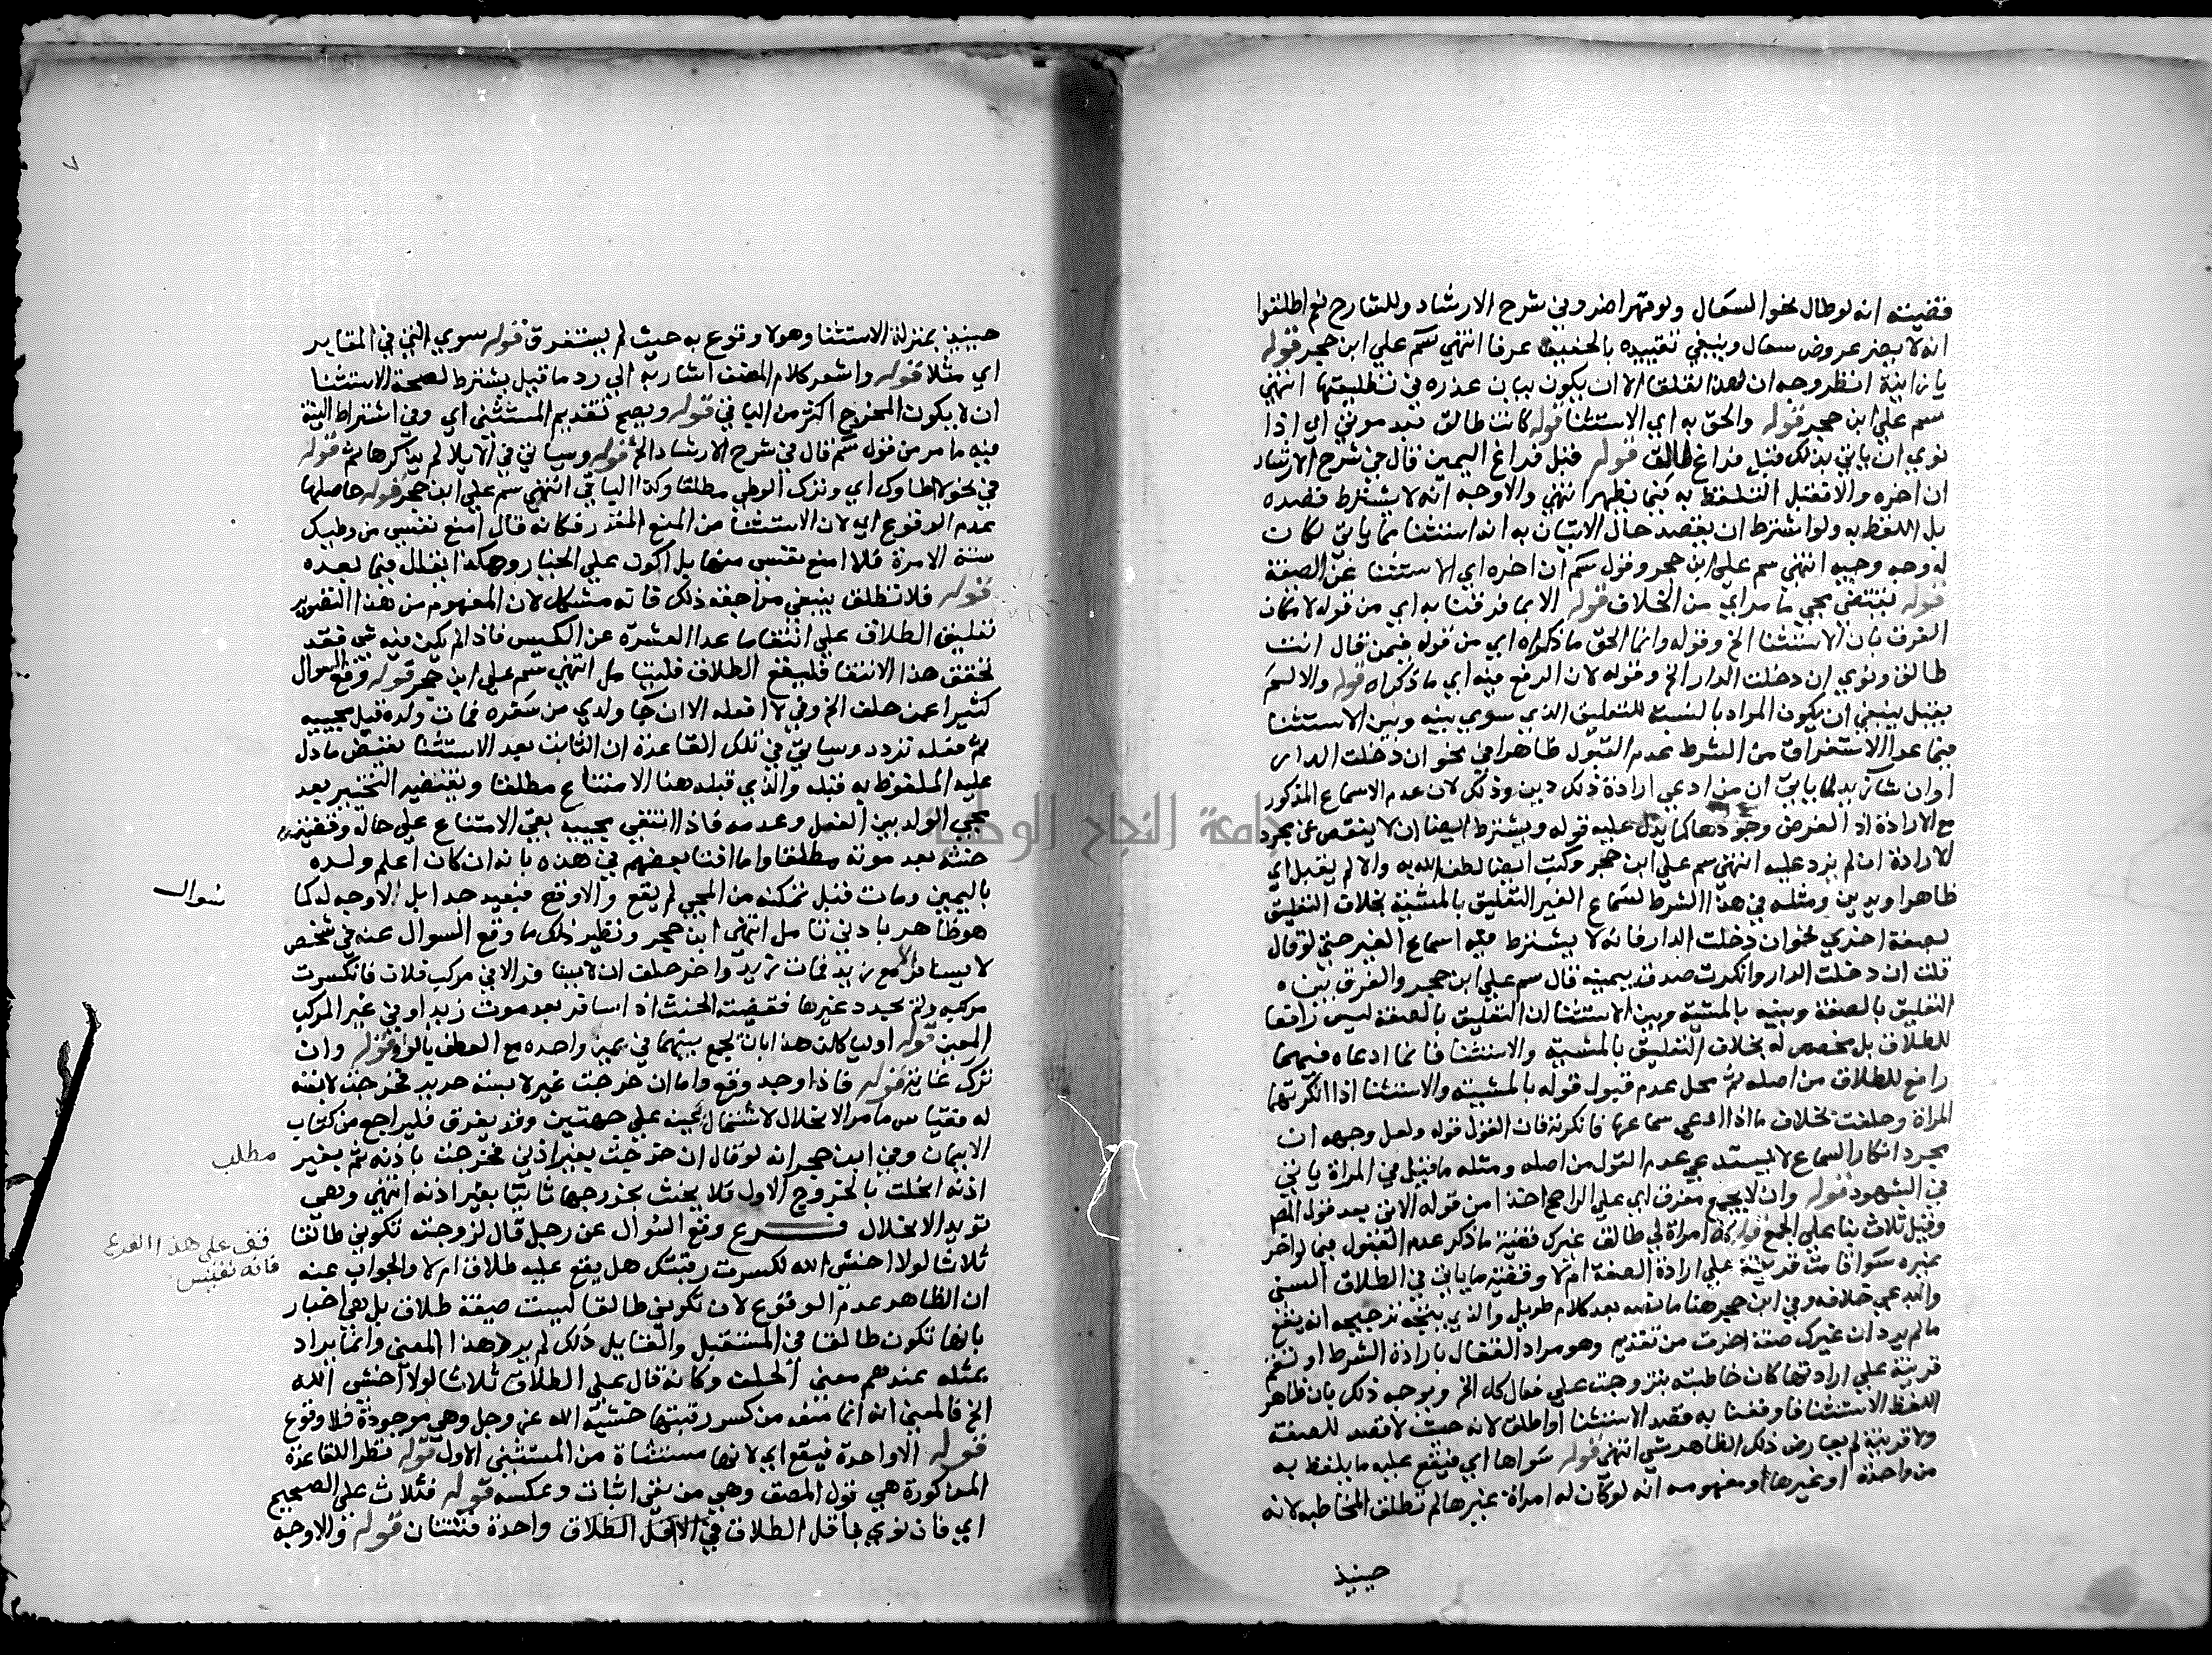 فقضيته انه لو طال نحو السعال ولو قهرا ضر وفي شرح الارشاد وللشارح نعم اطلقوا
انه لا يضر عروض سعال وينبغي تقييده بالخفيف عرفا انتهي سم علي ابن حجر قوله
يا زانية انظر وجه ان لهذا تعلقا الا ان يكون بيان عذره في تطليقها انتهي
سم علي ابن حجر قوله والحق به اي الاستثنا قوله كانت طالق بعد موتي اي اذا
نوي ان ياتي بذلك قبل فراغ طالق قوله قبل فراغ اليمين قال في شرح الارشاد
ان اخره والا فقبل التلفظ به فيما يظهر انتهي والاوجه انه لا يشترط قصده
بل اللفظ به ولو اشترط ان يقصد حال الاتيان به انه استثنا مما ياتي لكان
له وجه وجيه انتهي سم علي ابن حجر وقول سم ان اخره اي الاستثنا عن الصيغة
قوله يقتضي مجي ما مر اي من الخلاف قوله الا بما فرقنا به اي من قوله لامكان
الفرق بان الاستثنا الخ وقوله وانما الحق ما ذكراه اي من قوله فيمن قال انت
طالق ونوي ان دخلت الدار الخ وقوله لان الرفع فيه اي ما ذكراه قوله والا لم
يقبل ينبغي ان يكون المراد بالنسبة للتعليق الذي سوي بينه وبين الاستثنا
فيما عدا الاستغراق من الشرط عدم القبول ظاهرا في نحو ان دخلت الدار
او ان شا زيد لما ياتي ان من ادعي ارادة ذلك دين وذلك لان عدم الاسماع المذكور
مع الارادة اذ الفرض وجودها كما يدل عليه قوله ويشترط ايضا ان لا ينقص عن مجرد
الارادة ان لم يزد عليه انتهي سم علي ابن حجر وكتب ايضا لطف الله به والا لم يقبل اي
ظاهرا ويدين ومثله في هذا الشرط لسماع الغير التعليق بالمشيئة بخلاف التعليق
بصفة اخري نحو ان دخلت الدار فانه لا يشترط فيه اسماع الغير حتي لو قال
قلت ان دخلت الدار وانكرت صدق بيمينه قال سم علي ابن حجر والفرق بين
التعليق بالصفة وبينه بالمشيئة وبين الاستثنا ان التعليق بالصفة ليس رافعا
للطلاق بل مخصص له بخلاف التعليق بالمشيئة والاستثنا فان ما ادعاه فيهما
رافع للطلاق من اصله ثم محل عدم قبول قوله بالمشيئة والاستثنا اذا انكرتهما
المراة وحلفت بخلاف ما اذا ادعي سماعها فانكرته فان القول قوله ولعل وجهه ان
مجرد انكار السماع لا يستدعي عدم القول من اصله ومثله ما قيل في المراة ياتي
في الشهود قوله وان لا يجمع مفرق اي علي الراجح اخذا من قوله الاتي بعد قول المص
وقيل ثلاث بنا علي الجمع قوله كل امراة لي طالق غيرك قضية ما ذكر عدم القبول فيما لو اخر
غيره سوا قامت قرينة علي ارادة الصفة ام لا وقضية ما ياتي في الطلاق السني
والبدعي خلافه وفي ابن حجر هنا ما نصه بعد كلام طويل والذي يتجه ترجيحه انه يقع
ما لم يرد ان غيرك صفة اخرت من تقديم وهو مراد القفال بارادة الشرط او تقم
قرينة علي ارادتها كان خاطبته بتزوجت علي فقال كل الخ ويوجه ذلك بان ظاهر
اللفظ الاستثنا فاوقعنا به قصد الاستثنا او اطلق لانه حيث لا قصد للصفة
ولا قرينة لم يعارض ذلك الظاهر شي انتهي قوله سواها اي فيقع عليه ما يلفظ به
من واحدة او غيرها ومفهومه انه لو كان له امراة غيرها لم تطلق المخاطبه لانه
حينيذ
٧
حينيذ بمنزلة الاستثنا وهو لا وقوع به حيث لم يستغرق قوله سوي التي في المقابر
اي مثلا قوله واشعر كلام المصنف اشار به الي رد ما قيل يشترط لصحة الاستثنا
ان لا يكون المخرج اكثر من الباقي قوله ويصح تقديم المستثني اي وفي اشتراط النية
فيه ما مر من قول سم قال في شرح الارشاد الخ قوله وسياتي في الايلا لم يذكرها ثم قوله
في نحو لا اطاوك اي وترك الوطي مطلقا وكذا الباقي انتهي سم علي ابن حجر قوله حاصلها
عدم الوقوع اي لان الاستثنا من المنع المقدر فكانه قال امنع نفسي من وطيك
سنة الا مرة فلا امنع نفسي منها بل اكون علي الخيار وهكذا يقال فيما بعده
قوله فلا تطلق ينبغي مراجعه ذلك فانه مشكل لان المفهوم من هذا التصوير
تعليق الطلاق علي انتفا ما عدا العشرة عن الكيس فاذا لم يكن فيه شي فقد
تحقق هذا الانتفا فليقع الطلاق فليتامل انتهي سم علي ابن حجر قوله وقع السوال
كثيرا عمن حلف الخ وفي لا افعله الا ان جا ولدي من سفره فمات ولده قبل مجييه
ثم فعله تردد وسياتي في تلك القاعدة ان الثابت بعد الاستثنا نقيض ما دل
عليه الملفوظ به قبله والذي قبله هنا الامتناع مطلقا ونقيضه التخيير بعد
مجي الولد بين الفعل وعدمه فاذا انتفي مجييه بقي الامتناع علي حاله وقضيته
حنثه بعد موته مطلقا واما افتا بعضهم في هذه بانه ان كان اعلم ولده
باليمين ومات قبل تمكنه من المجي لم يقع والا وقع فبعيد جدا بل الاوجه له كما
هو ظاهر بادني تامل انتهي ابن حجر ونظير ذلك ما وقع السوال عنه في شخص
لا يسافر الا مع زيد فمات زيد واخر حلف ان لا يسافر الا في مركب فلان فانكسرت
مركبه ولم يجدد غيرها فقضيته الحنث اذا سافر بعد موت زيد او في غير المركب
المعين قوله اولبا كلن هذا بان يجمع بينهما في يمين واحده مع العطف بالواو قوله وان
ترك غايته قوله فاذا وجد وقع واما ان خرجت غير لابسة حرير فخرجت لابسة
له فقياس ما مر الانحلال لاشتمال يمينه علي جهتين وقد يفرق فليراجع من كتاب
الايمان وفي ابن حجر انه لو قال ان خرجت بغير اذني فخرجت باذنه ثم بغير
اذنه انحلت بالخروج الاول فلا يحنث بخروجها ثانيا بغير اذنه انتهي وهي
تويد الانحلال فرع وقع السوال عن رجل قال لزوجته تكوني طالقا
ثلاثا لولا اخشي الله لكسرت رقبتك هل يقع عليه طلاق ام لا والجواب عنه
ان الظاهر عدم الوقوع لان تكوني طالقا ليست صيغة طلاق بل هي اخبار
بانها تكون طالقا في المستقبل والقايل ذلك لم يرد هذا المعني وانما يراد
بمثله عندهم معني الحلف وكانه قال علي الطلاق ثلاثا لولا اخشي الله
الخ فالمعني انه انما منعه من كسر رقبتها خشية الله عز وجل وهي موجودة فلا وقوع
قوله الا واحدة فيقع اي لانها مستثناة من المستثني الاول قوله نظر القاعدة
المذكورة هي قول المصنف وهي من نفي اثبات وعكسه قوله فثلاث علي الصحيح
اي فان نوي باقل الطلاق في الاقل الطلاق واحدة فثنتان قوله والاوجه
سوال
مطلب
قف علي هذا الفرع
فانه نفيس
جامعة النجاح الوطنية